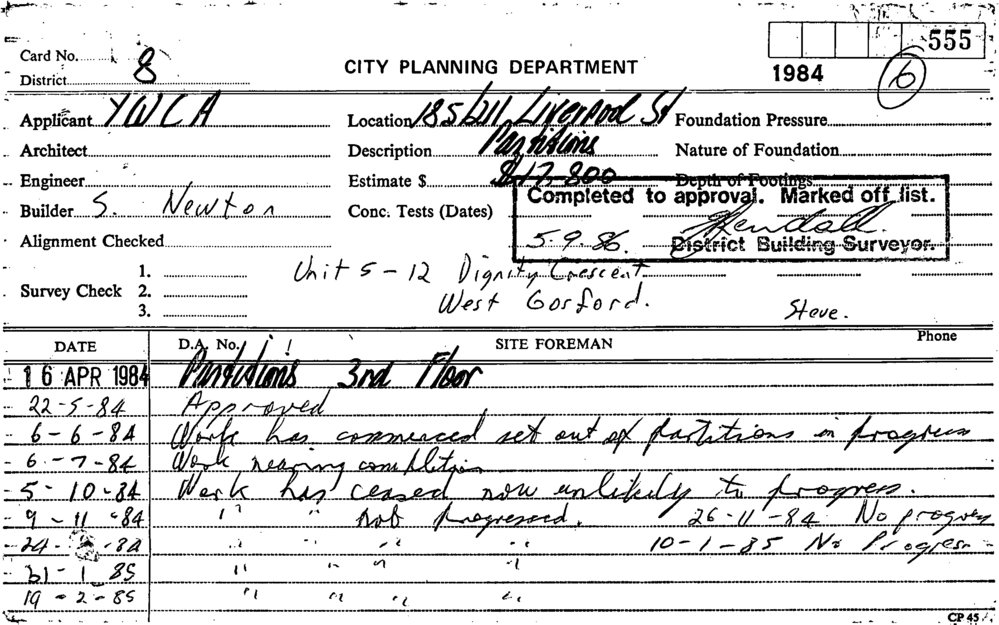 555
Card No. 8
CITY PLANNING DEPARTMENT
1984
6
District
Applicant YWCA
Location 185/211 Liverpool St
Foundation Pressure
Architect
Description Partitions
Nature of Foundation
Engineer
Estimate $ $17-800
Depth of Footings
Completed to approval. Marked off list.
Builder S. Newton
Conc. Tests (Dates)
5-9-86
Kendall.
District Building Surveyor.
Alignment Checked
1.
Unit 5-12 Dignity Crescent
Survey Check 2.
West Gosford.
3.
Steve.
DATE
D.A. No.
SITE FOREMAN
Phone
16 APR 1984 Partitions 3rd Floor
22-5-84 Approved
6-6-84 Work has commenced set out of partitions in progress
6-7-84 Work nearing completion
5-10-84 Work has ceased now unlikely to progress.
9-11-84 " " not progressed. 26-11-84 No progress
24- -84 " " " " 10-1-85 No Progress
31-1-85 " " " "
19-2-85 " " " "
CP 45